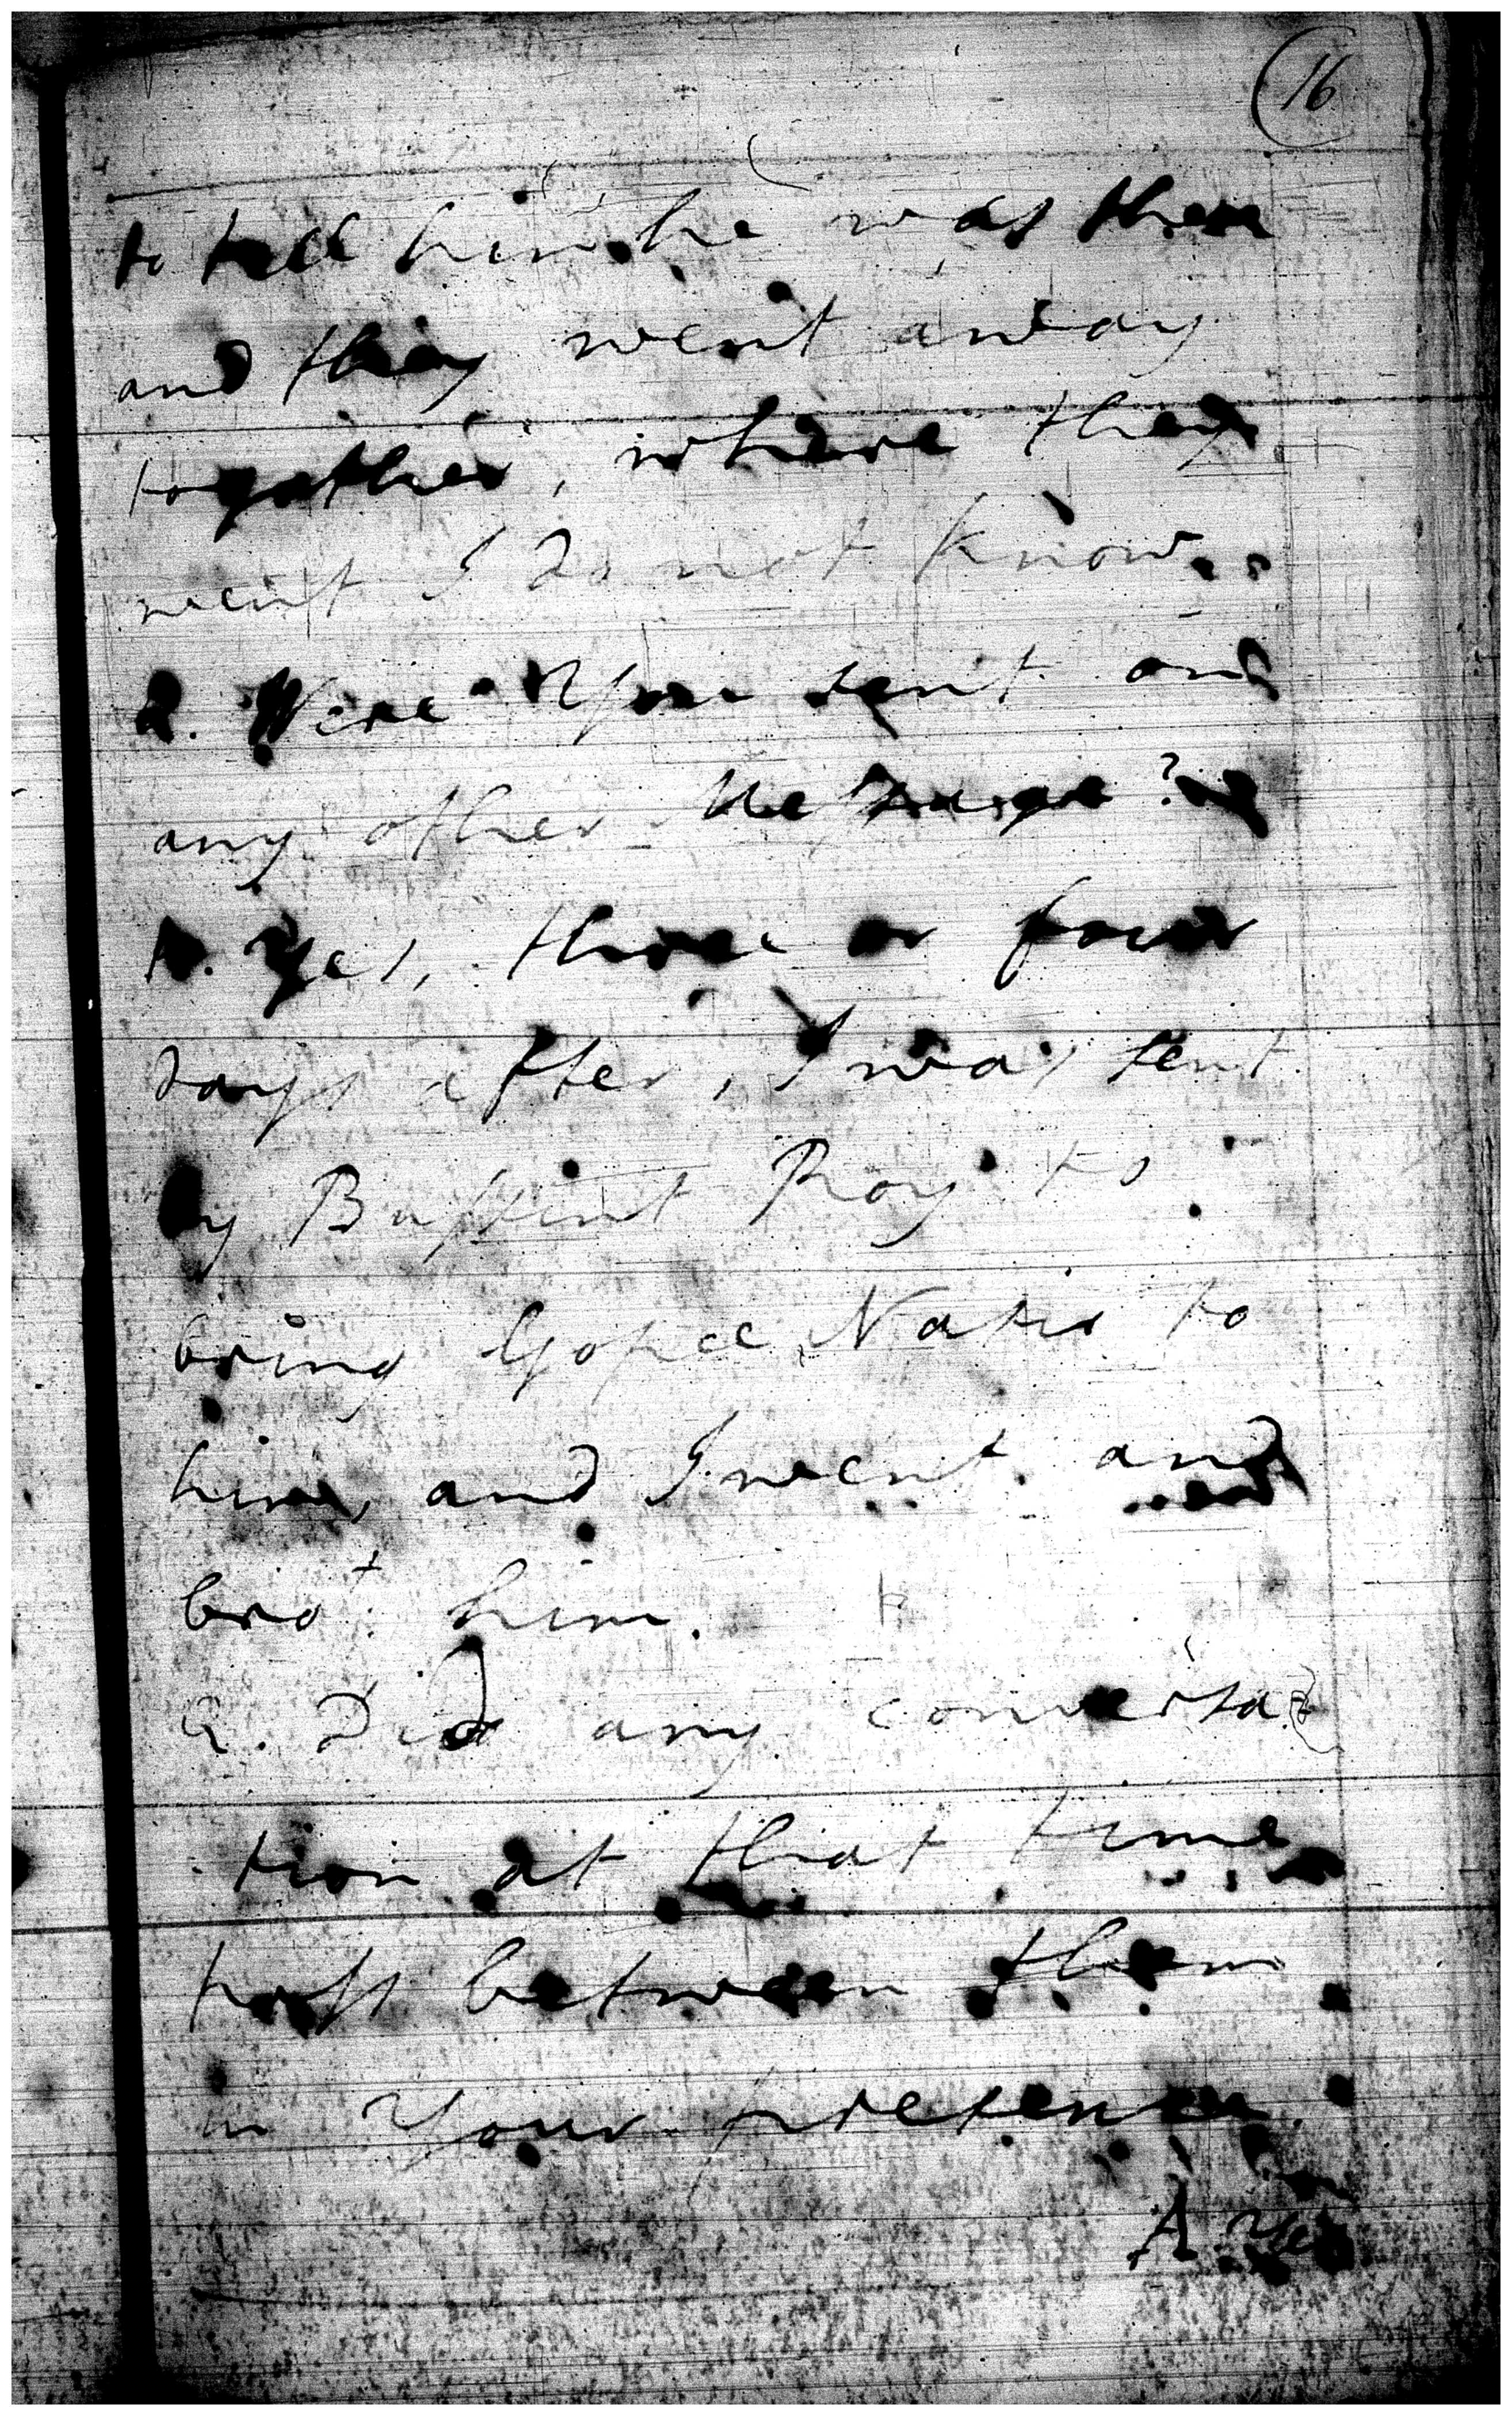 16
to tell him he was there
and they went away
together, where they
went I do not know.
Q. Were You sent on
any other Message?
A. Yes, three or four
days after, I was sent
by Bussint Roy to
bring Gopee Nath to
him, and I went and
brot. him.
Q. Did any conversa
tion at that time
pass between them
in Your presence.
A. Yes